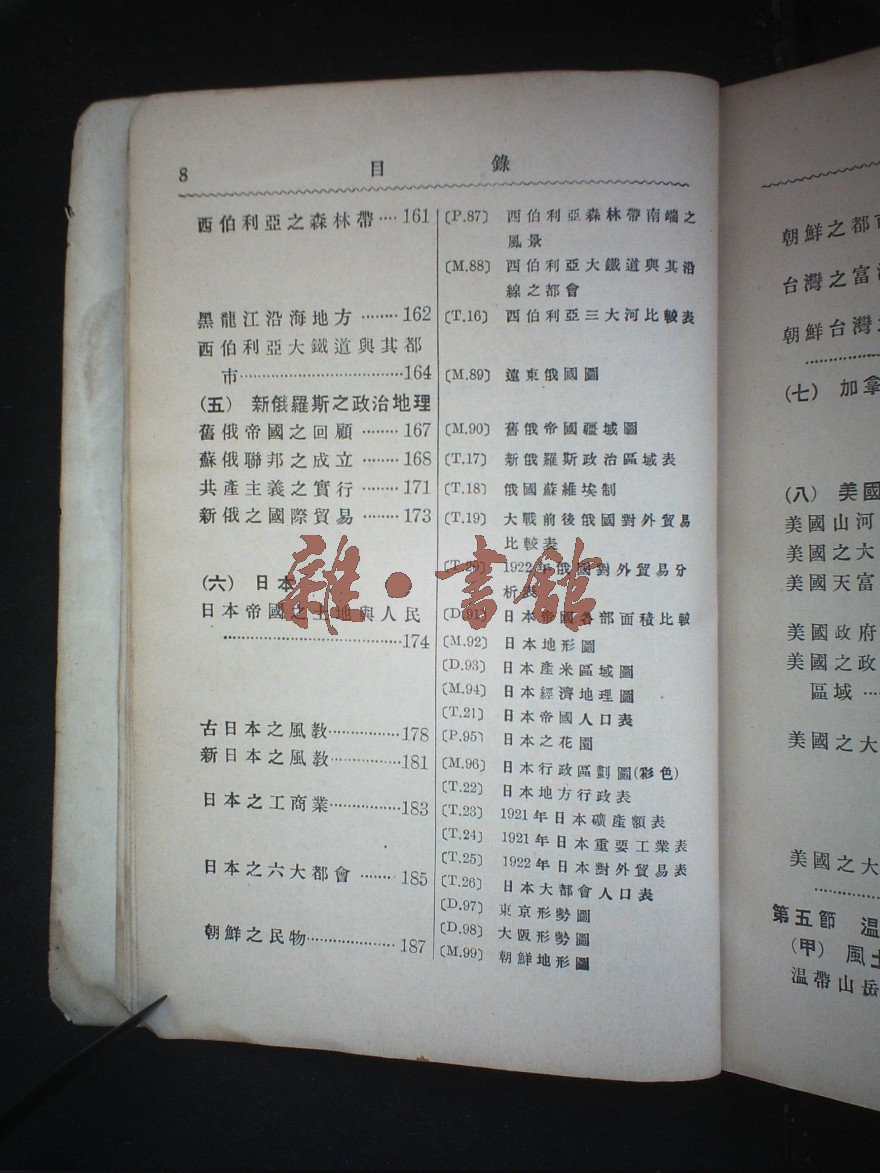 8 目錄
西伯利亞之森林帶····161
黑龍江沿海地方········162
西伯利亞大鐵道與其都
市···································164
(五) 新俄羅斯之政治地理
舊俄帝國之回顧········167
蘇俄聯邦之成立········168
共產主義之實行········171
新俄之國際貿易········173
(六) 日本
日本帝國之土地與人民
······································174
古日本之風敎···············178
新日本之風敎···············181
日本之工商業···············183
日本之六大都會········185
朝鮮之民物···················187
〔P.87〕 西伯利亞森林帶南端之
風景
〔M.88〕 西伯利亞大鐵道與其沿
線之都會
〔T.16〕 西伯利亞三大河比較表
〔M.89〕 遠東俄國圖
〔M.90〕 舊俄帝國疆域圖
〔T.17〕 新俄羅斯政治區域表
〔T.18〕 俄國蘇維埃制
〔T.19〕 大戰前後俄國對外貿易
比較表
〔T.20〕 1922年俄國對外貿易分
析表
〔D.91〕 日本帝國各部面積比較
〔M.92〕 日本地形圖
〔D.93〕 日本產米區域圖
〔M.94〕 日本經濟地理圖
〔T.21〕 日本帝國人口表
〔P.95〕 日本之花園
〔M.96〕 日本行政區劃圖(彩色)
〔T.22〕 日本地方行政表
〔T.23〕 1921年日本礦產額表
〔T.24〕 1921年日本重要工業表
〔T.25〕 1922年日本對外貿易表
〔T.26〕 日本大都會人口表
〔D.97〕 東京形勢圖
〔D.98〕 大阪形勢圖
〔M.99〕 朝鮮地形圖
雜·書館
朝鮮之都
台灣之富
朝鮮台灣
(七) 加拿
(八) 美國
美國山河
美國之大
美國天富
美國政府
美國之政
區域
美國之大
美國之大
第五節 溫
(甲) 風土
溫帶山岳